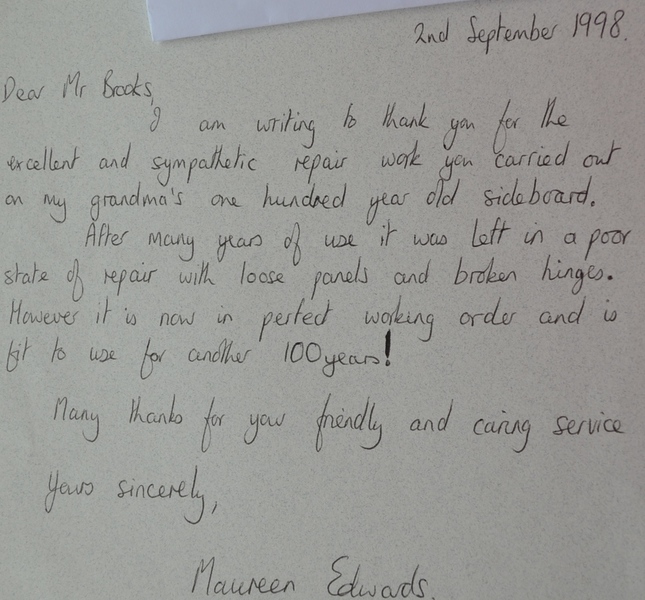 2nd September 1998.
Dear Mr Brooks,
I am writing to thank you for the
excellent and sympathetic repair work you carried out
on my grandma's one hundred year old sideboard.
After many years of use it was left in a poor
state of repair with loose panels and broken hinges.
However it is now in perfect working order and is
fit to use for another 100 years!
Many thanks for your friendly and caring service
Yours sincerely,
Maureen Edwards.